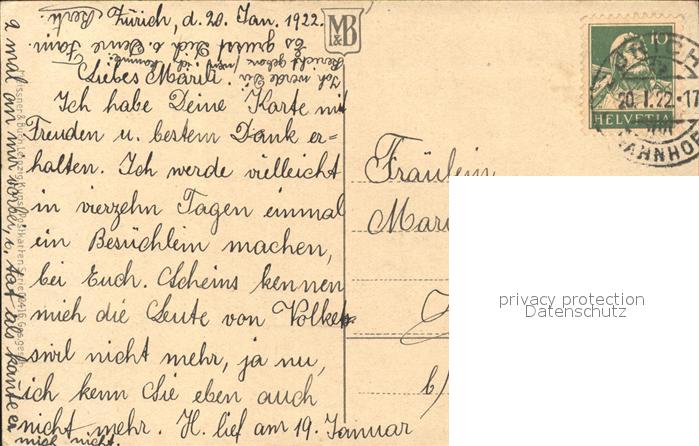 Zürich, d. 20. Jan. 1922.
Liebes Marili.
Ich habe Deine Karte mit
Freuden u. bestem Dank er=
halten. Ich werde vielleicht
in vierzehn Tagen einmal
ein Besüchlein machen,
bei Euch. Scheins kennen
mich die Leute von Volket=
swil nicht mehr, ja nu,
ich kenn Sie eben auch
nicht mehr. H. lief am 19. Januar
2 mal an mir vorbei, u. tat als kannte er
mich nicht.
Ich werde Dir
Bericht geben, wenn ich komme.
Es grüsst Dich s. Deine
Berti
M&B
10
HELVETIA
20.I.22-17
BAHNHOF
Fräulein
Mari
b/
privacy protection
Datenschutz